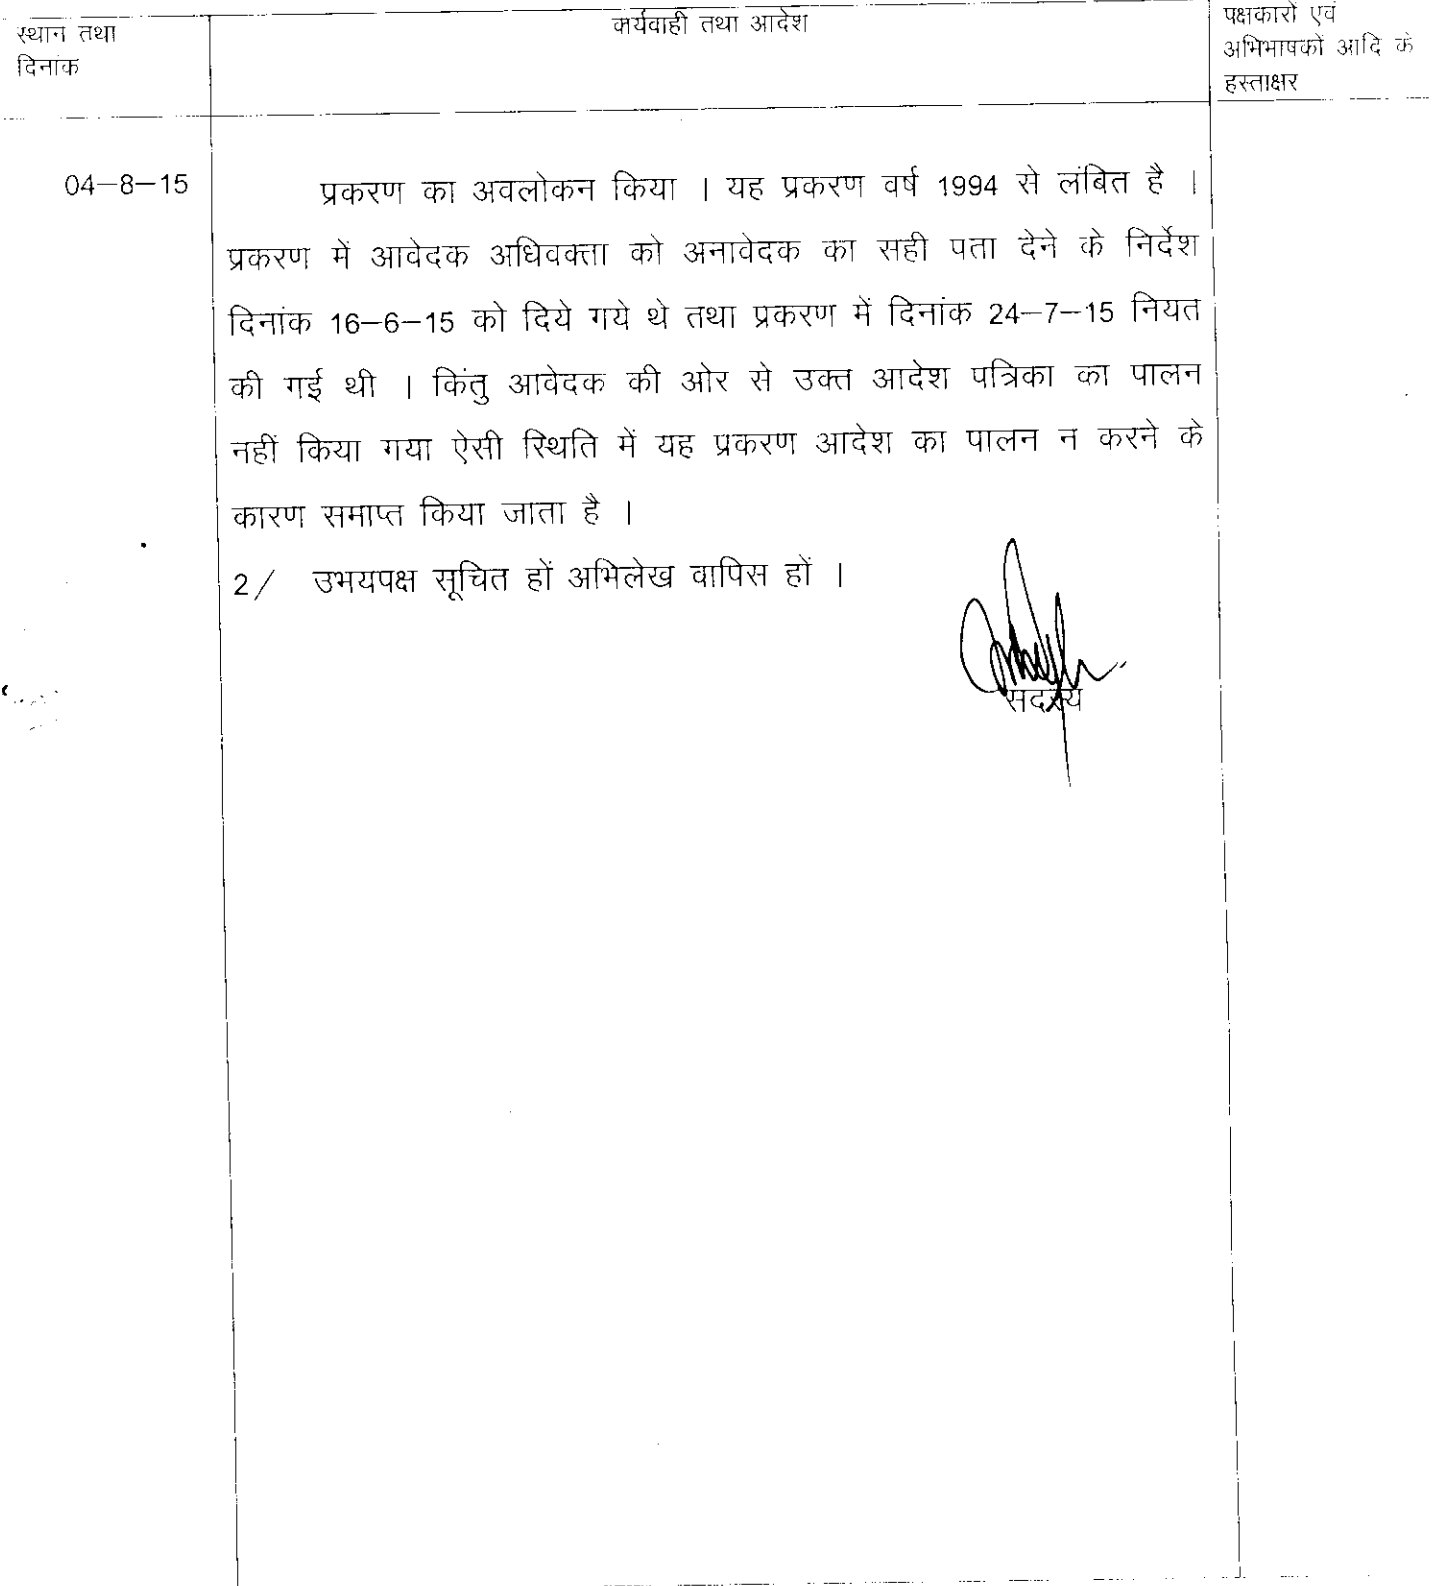 स्थान तथा
दिनांक
कार्यवाही तथा आदेश
पक्षकारों एवं
अभिभाषकों आदि के
हस्ताक्षर
04–8–15
प्रकरण का अवलोकन किया । यह प्रकरण वर्ष 1994 से लंबित है ।
प्रकरण में आवेदक अधिवक्ता को अनावेदक का सही पता देने के निर्देश
दिनांक 16–6–15 को दिये गये थे तथा प्रकरण में दिनांक 24–7–15 नियत
की गई थी । किंतु आवेदक की ओर से उक्त आदेश पत्रिका का पालन
नहीं किया गया ऐसी स्थिति में यह प्रकरण आदेश का पालन न करने के
कारण समाप्त किया जाता है ।
2/ उभयपक्ष सूचित हों अभिलेख वापिस हों ।
सदस्य